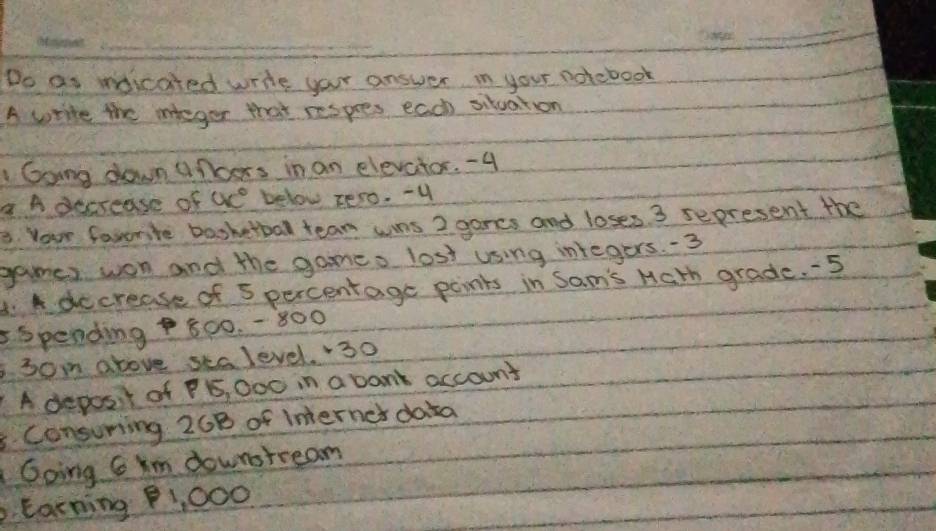 Do as indicated write your answer in your notebook
A write the integer that respres each situation
1 Going down 4 floors in an elevator. -4
2. A decrease of 4c° below zero. -4
3. Your favorite basketball team wins 2 games and loses 3 represent the
games won and the games lost using integers. -3
4. A decrease of 5 percentage points in Sam's Math grade. -5
5 Spending ₱800. -800
6. 30m above sea level. +30
7 A deposit of ₱15,000 in a bank account
8. Consuming 2GB of Internet data
9 Going 6 km downstream
10. Earning ₱1,000